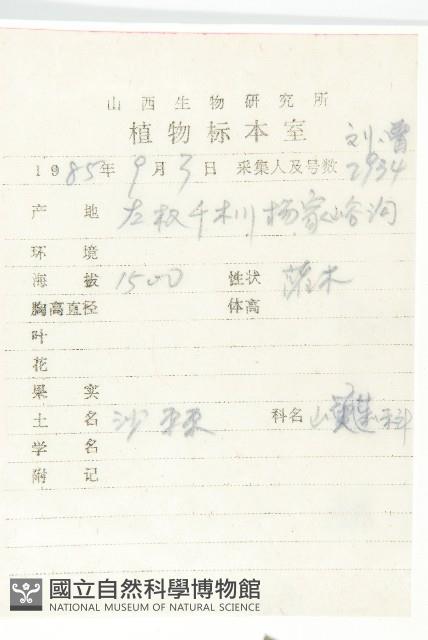 山西生物研究所
植物标本室
1985年9月3日 采集人及号数 刘 2934
产地 左权 杨家峪沟
环境
海拔 1500 性状 灌木
胸高直径 体高
叶
花
果实
土名 沙棘 科名 科
学名
附记
國立自然科學博物館
NATIONAL MUSEUM OF NATURAL SCIENCE